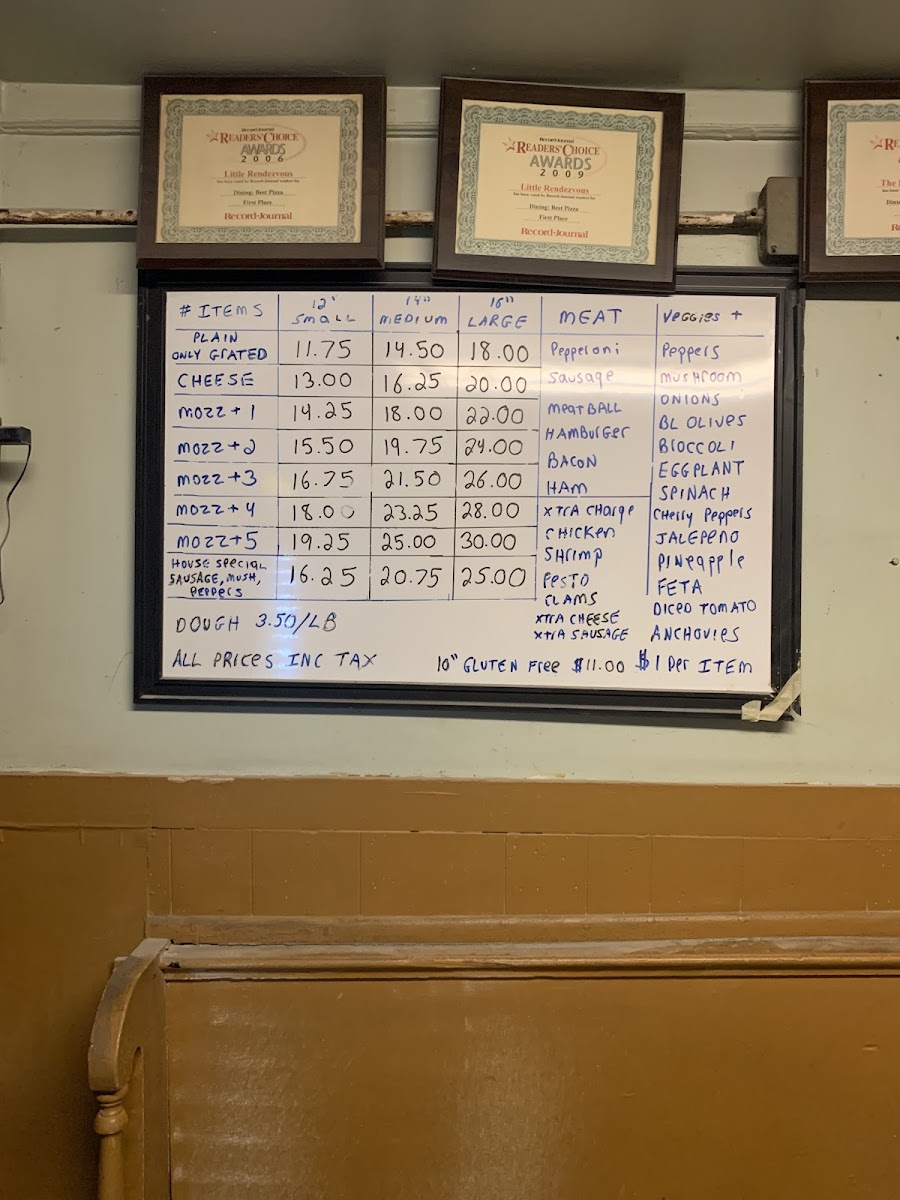 Record-Journal
READERS' CHOICE
AWARDS
2006
Little Rendezvous
has been voted by Record-Journal readers for
Dining: Best Pizza
First Place
Record-Journal
Record-Journal
READERS' CHOICE
AWARDS
2009
Little Rendezvous
has been voted by Record-Journal readers for
Dining: Best Pizza
First Place
Record-Journal
# ITEMS 12" SMALL 14" MEDIUM 16" LARGE
PLAIN ONLY GRATED 11.75 14.50 18.00
CHEESE 13.00 16.25 20.00
MOZZ + 1 14.25 18.00 22.00
MOZZ + 2 15.50 19.75 24.00
MOZZ +3 16.75 21.50 26.00
MOZZ + 4 18.00 23.25 28.00
MOZZ + 5 19.25 25.00 30.00
HOUSE SPECIAL SAUSAGE, MUSH, PEPPERS 16.25 20.75 25.00
MEAT
PEPPERONI
SAUSAGE
MEATBALL
HAMBURGER
BACON
HAM
XTRA CHARGE
CHICKEN
SHRIMP
PESTO
CLAMS
XTRA CHEESE
XTRA SAUSAGE
VEGGIES +
PEPPERS
MUSHROOM
ONIONS
BL OLIVES
BROCCOLI
EGGPLANT
SPINACH
CHERRY PEPPERS
JALEPENO
PINEAPPLE
FETA
DICED TOMATO
ANCHOVIES
DOUGH 3.50/LB
ALL PRICES INC TAX
10" GLUTEN FREE $11.00 $1 PER ITEM